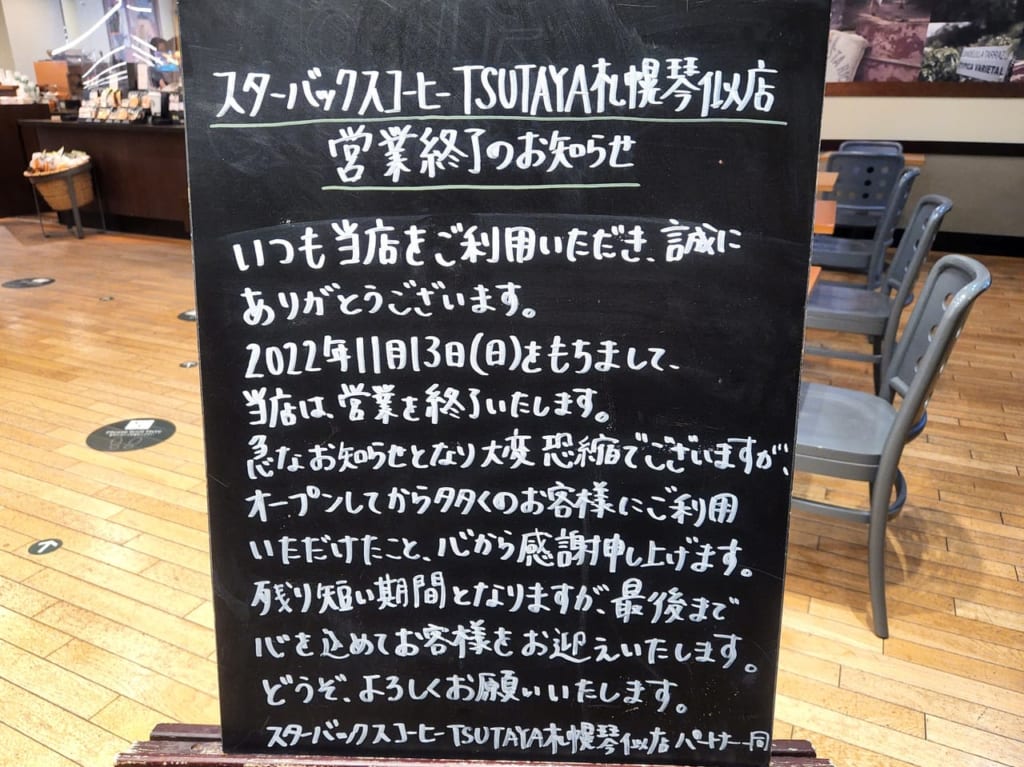 スターバックスコーヒー TSUTAYA札幌琴似店
営業終了のお知らせ
いつも当店をご利用いただき、誠に
ありがとうございます。
2022年11月13日(日)をもちまして、
当店は、営業を終了いたします。
急なお知らせとなり大変恐縮でございますが、
オープンしてから多くのお客様にご利用
いただけたこと、心から感謝申し上げます。
残り短い期間となりますが、最後まで
心を込めてお客様をお迎えいたします。
どうぞ、よろしくお願いいたします。
スターバックスコーヒー TSUTAYA札幌琴似店 パートナー一同